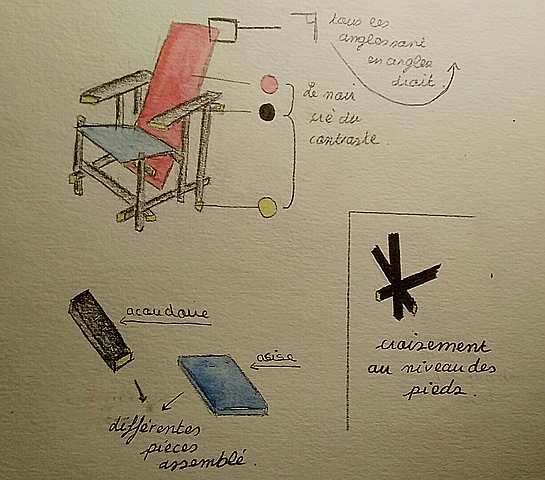 tous les
angles sont
en angles
droit.
Le noir
cré du
contraste.
acoudoire
asise
croisement
au niveau des
pieds.
différentes
pièces
assemblé.